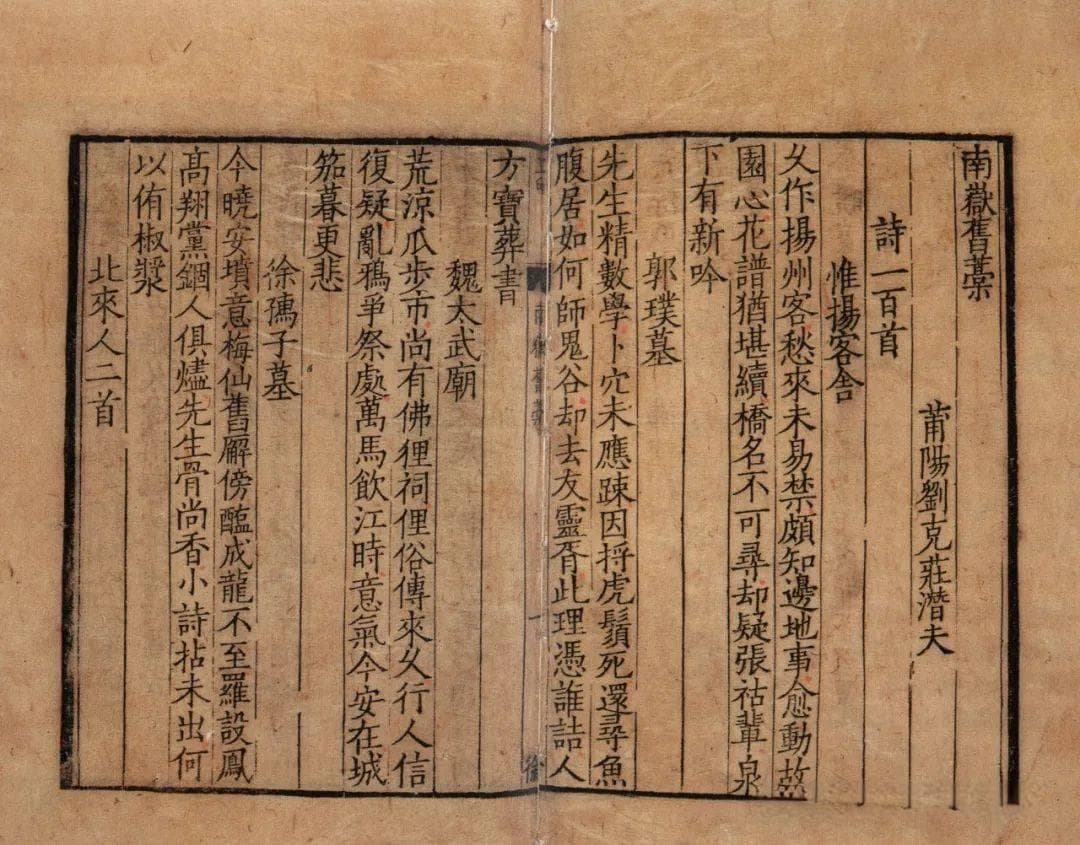 南嶽舊藁
莆陽劉克莊潛夫
詩一百首
惟揚客舍
久作揚州客愁來未易禁頗知邊地事愈動故
園心花譜猶堪續橋名不可尋却疑張祜輩泉
下有新吟
郭璞墓
先生精數學卜穴未應踈因捋虎鬚死還尋魚
腹居如何師鬼谷却去友靈胥此理憑誰詰人
南嶽舊藁
一
徐
方寶葬書
魏太武廟
荒涼瓜步市尚有佛狸祠俚俗傳來久行人信
復疑亂鴉爭祭處萬馬飲江時意氣今安在城
笳暮更悲
徐孺子墓
今曉安墳意梅仙舊廨傍醢成龍不至羅設鳳
高翔黨錮人俱燼先生骨尚香小詩拈未出何
以侑椒漿
北來人二首